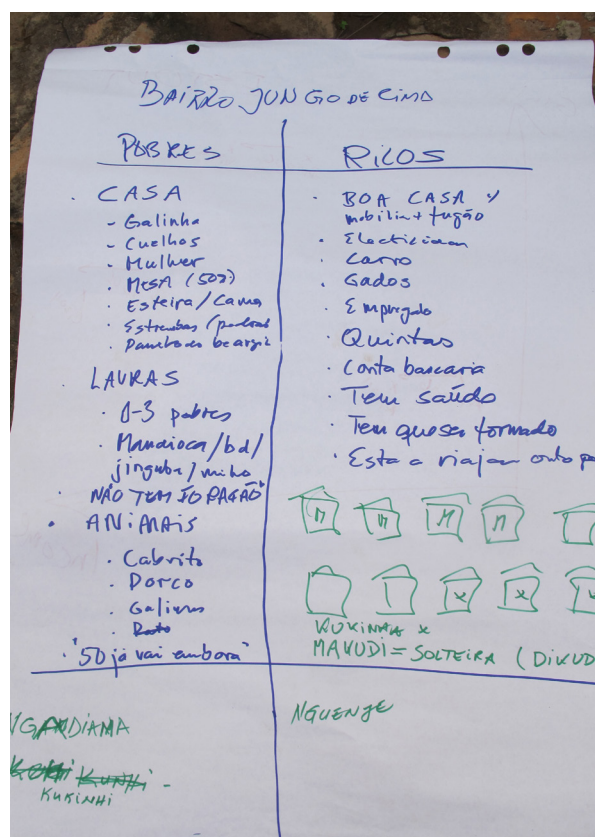 BAIRRO JUNGO DE CIMA
POBRES
. CASA
- Galinha
- Cuelhos
- Mulher
- MESA (50%)
- Esteira/Cama
- Panelas de
. LAVRAS
. 0-3 pobres
. Mandioca/bd/
jinguba/milho
. NÃO TEM
. ANIMAIS
. Cabrito
. Porco
. Galinhas
. Rato
. "50 já vai embora"
RICOS
. BOA CASA
mobilia + fugão
. Carro
. Gados
. Empregado
. Quintas
. Conta bancaria
. Tem saúdo
. Tem que ser formado
. Esta a viajar
M M M M
x x
KUKINHA x
MAKUDI = SOLTEIRA (DIKUD
NGANDIAMA
KUNHI -
KUKINHI
NGUENJE